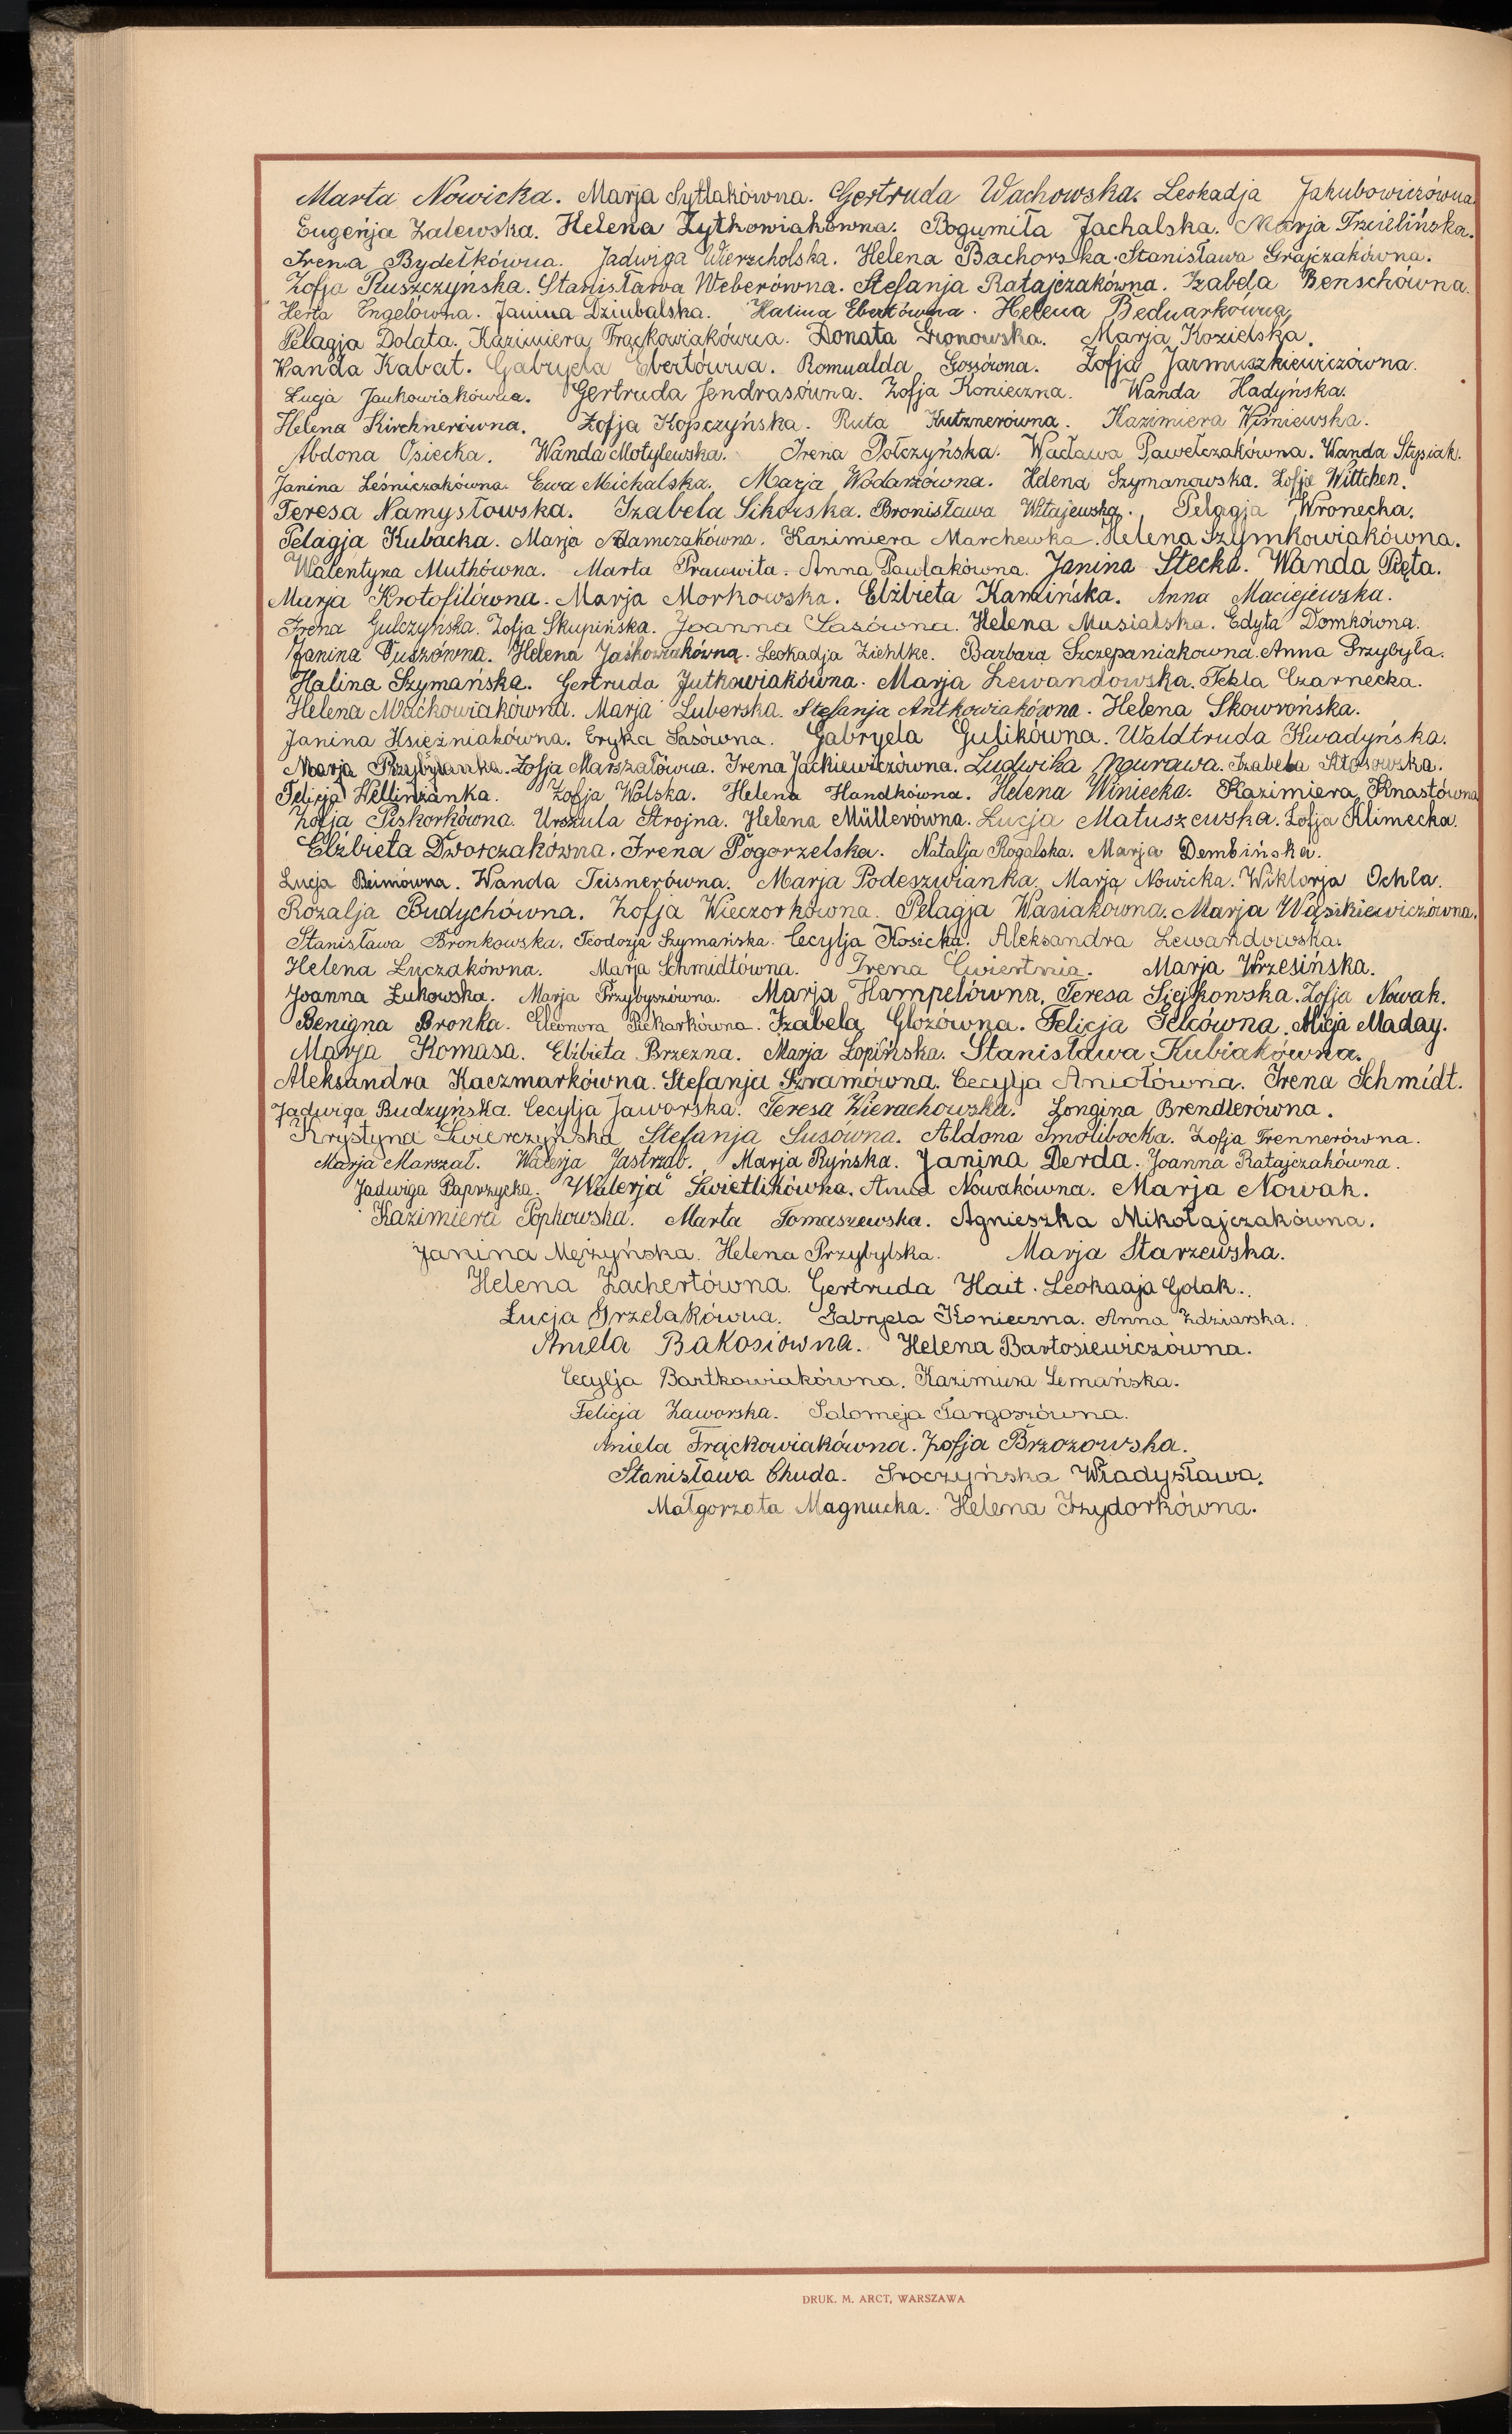 Marta Nowicka. Marja Sytlakówna. Gertruda Wachowska. Leokadja Jakubowiczówna.
Eugenja Zalewska. Helena Żytkowiakówna. Bogumiła Jachalska. Marja Trzcielińska.
Irena Bydełkówna. Jadwiga Wierzcholska. Helena Bachorska. Stanisława Grajczakówna.
Zofja Ruszczyńska. Stanisława Weberówna. Stefanja Ratajczakówna. Izabela Benschówna.
Herta Engelówna. Janina Dziubalska. Halina Ebertówna. Helena Bednarkówna.
Pelagja Dolata. Kazimiera Frąckowiakówna. Donata Gronowska. Marja Kozielska.
Wanda Kabat. Gabryela Ebertówna. Romualda Gozsówna. Zofja Jarmuszkiewiczówna.
Łucja Jankowiakówna. Gertruda Jendrasówna. Zofja Konieczna. Wanda Hadyńska.
Helena Kirchnerówna. Zofja Kopczyńska. Ruta Kutznerówna. Kazimiera Wiśniewska.
Abdona Osiecka. Wanda Motylewska. Irena Połczyńska. Wacława Pawełczakówna. Wanda Stysiak.
Janina Leśniczakówna. Ewa Michalska. Marja Wodarzówna. Helena Szymanowska. Zofja Wittchen.
Teresa Namysłowska. Izabela Sikorska. Bronisława Witajewska. Pelagja Wronecka.
Pelagja Kubacka. Marja Adamczakówna. Kazimiera Marchewka. Helena Szymkowiakówna.
Walentyna Muthówna. Marta Prauwita. Anna Pawlakówna. Janina Stecka. Wanda Pięta.
Marja Krotofilówna. Marja Morkowska. Elżbieta Kamińska. Anna Maciejewska.
Irena Gulczyńska. Zofja Skupińska. Joanna Sasówna. Helena Musialska. Edyta Domkówna.
Janina Duszówna. Helena Jaśkowiakówna. Leokadja Ziehlke. Barbara Szczepaniakowna. Anna Przybyła.
Halina Szymańska. Gertruda Jutkowiakówna. Marja Lewandowska. Tekla Czarnecka.
Helena Maćkowiakówna. Marja Luberska. Stefanja Antkowiakówna. Helena Skowrońska.
Janina Księżniakówna. Eryka Sasówna. Gabryela Gulikówna. Waldtruda Kwadyńska.
Marja Przybylanka. Zofja Marszałówna. Irena Jackiewiczówna. Ludwika Murawa. Izabela Stosowska.
Felicja Wellinżanka. Zofja Wolska. Helena Handkówna. Helena Winiecka. Kazimiera Knastówna
Zofja Piskorkówna. Urszula Strojna. Helena Müllerówna. Łucja Matuszewska. Zofja Klimecka.
Elżbieta Dworczakówna. Irena Pogorzelska. Natalja Rogalska. Marja Dembińska.
Łucja Beimówna. Wanda Teisnerówna. Marja Podeszwianka. Marja Nowicka. Wiktorja Ochla.
Rozalja Budychówna. Zofja Wieczorkówna. Pelagja Wasiakówna. Marja Wąsikiewiczówna.
Stanisława Bronkowska. Teodozja Szymańska. Cecylja Kosicka. Aleksandra Lewandowska.
Helena Łuczakówna. Marja Schmidtówna. Irena Ćwiertnia. Marja Wrzesińska.
Joanna Żukowska. Marja Przybyszówna. Marja Hampelówna. Teresa Siejkowska. Zofja Nowak.
Benigna Bronka. Eleonora Piekarkówna. Izabela Glozówna. Felicja Felcówna. Alicja Maday.
Marja Komasa. Elżbieta Brzezna. Marja Łopińska. Stanisława Kubiakówna.
Aleksandra Kaczmarkówna. Stefanja Szramówna. Cecylja Aniołówna. Irena Schmidt.
Jadwiga Budzyńska. Cecylja Jaworska. Teresa Wierachowska. Longina Brendlerówna.
Krystyna Świerczyńska Stefanja Susówna. Aldona Smolibocka. Zofja Trennerówna.
Marja Marszał. Walerja Jastrząb. Marja Ryńska. Janina Derda. Joanna Ratajczakówna.
Jadwiga Paprzycka. Walerja Świetlikówna. Anna Nowakówna. Marja Nowak.
Kazimiera Popkowska. Marta Tomaszewska. Agnieszka Mikołajczakówna.
Janina Mężyńska. Helena Przybylska. Marja Starzewska.
Helena Zachertówna. Gertruda Hait. Leokadja Golak.
Łucja Grzelakówna. Gabryela Konieczna. Anna Zdziarska.
Aniela Bakosiówna. Helena Bartosiewiczówna.
Cecylja Bartkowiakówna. Kazimiera Lemańska.
Felicja Zaworska. Salomeja Targoszówna.
Aniela Frąckowiakówna. Zofja Brzozowska.
Stanisława Chuda. Sroczyńska Władysława.
Małgorzata Magnucka. Helena Izydorkówna.
DRUK. M. ARCT, WARSZAWA